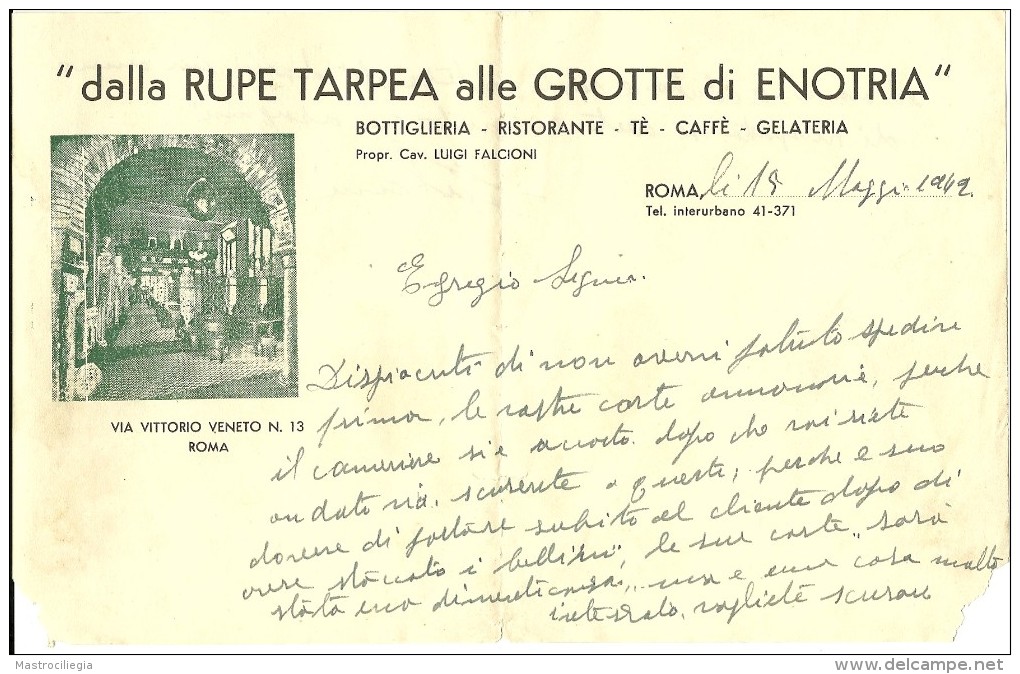 "dalla RUPE TARPEA alle GROTTE di ENOTRIA"
BOTTIGLIERIA - RISTORANTE - TÈ - CAFFÈ - GELATERIA
Propr. Cav. LUIGI FALCIONI
ROMA, li 18 Maggio 1942
Tel. interurbano 41-371
VIA VITTORIO VENETO N. 13
ROMA
Egregio Signor.
Dispiacenti di non avervi potuto spedire
prima, le vostre carte annonarie, perche
il cameriere si è accorto dopo che voi siete
andato via. scuserete a questi; perche è suo
dovere di portare subito al cliente dopo di
avere staccato i bollini, le sue carte, sarà
stata una dimenticanza, ma è una cosa molto
vogliete scusare
Mastrociliegia
www.delcampe.net